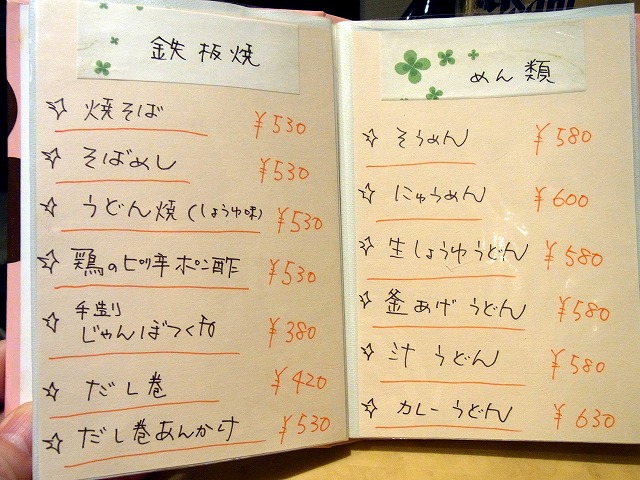 鉄板焼
焼そば ¥530
そばめし ¥530
うどん焼(しょうゆ味) ¥530
鶏のピリ辛ポン酢 ¥530
手造り
じゃんぼつくね ¥380
だし巻 ¥420
だし巻あんかけ ¥530
めん類
そうめん ¥580
にゅうめん ¥600
生しょうゆうどん ¥580
釜あげうどん ¥580
汁うどん ¥580
カレーうどん ¥630